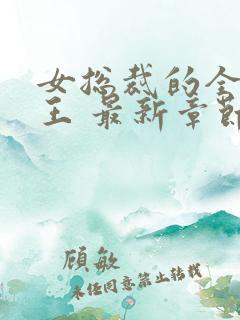 女总裁的全
王 最新章节
顾敏
未经同意禁止转载